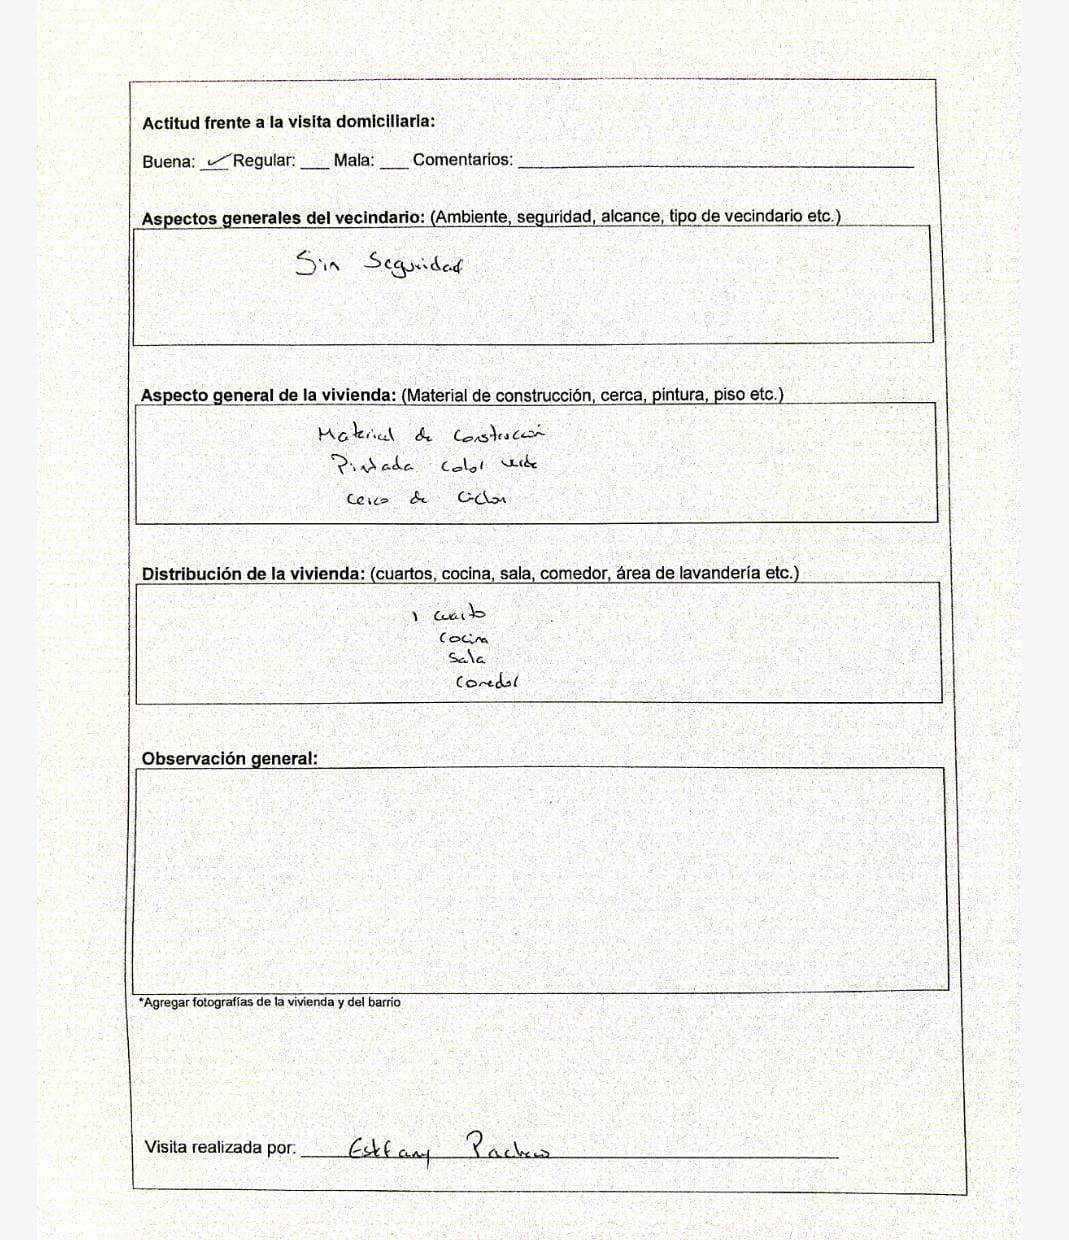 Actitud frente a la visita domiciliaria:
Buena: ✓ Regular: ___ Mala: ___ Comentarios: ___
Aspectos generales del vecindario: (Ambiente, seguridad, alcance, tipo de vecindario etc.)
Sin Seguridad
Aspecto general de la vivienda: (Material de construcción, cerca, pintura, piso etc.)
Material de construccion
Pintada color verde
cerco de ciclon
Distribución de la vivienda: (cuartos, cocina, sala, comedor, área de lavandería etc.)
1 cuarto
cocina
sala
comedor
Observación general:
*Agregar fotografías de la vivienda y del barrio
Visita realizada por: Estfany Pacheco